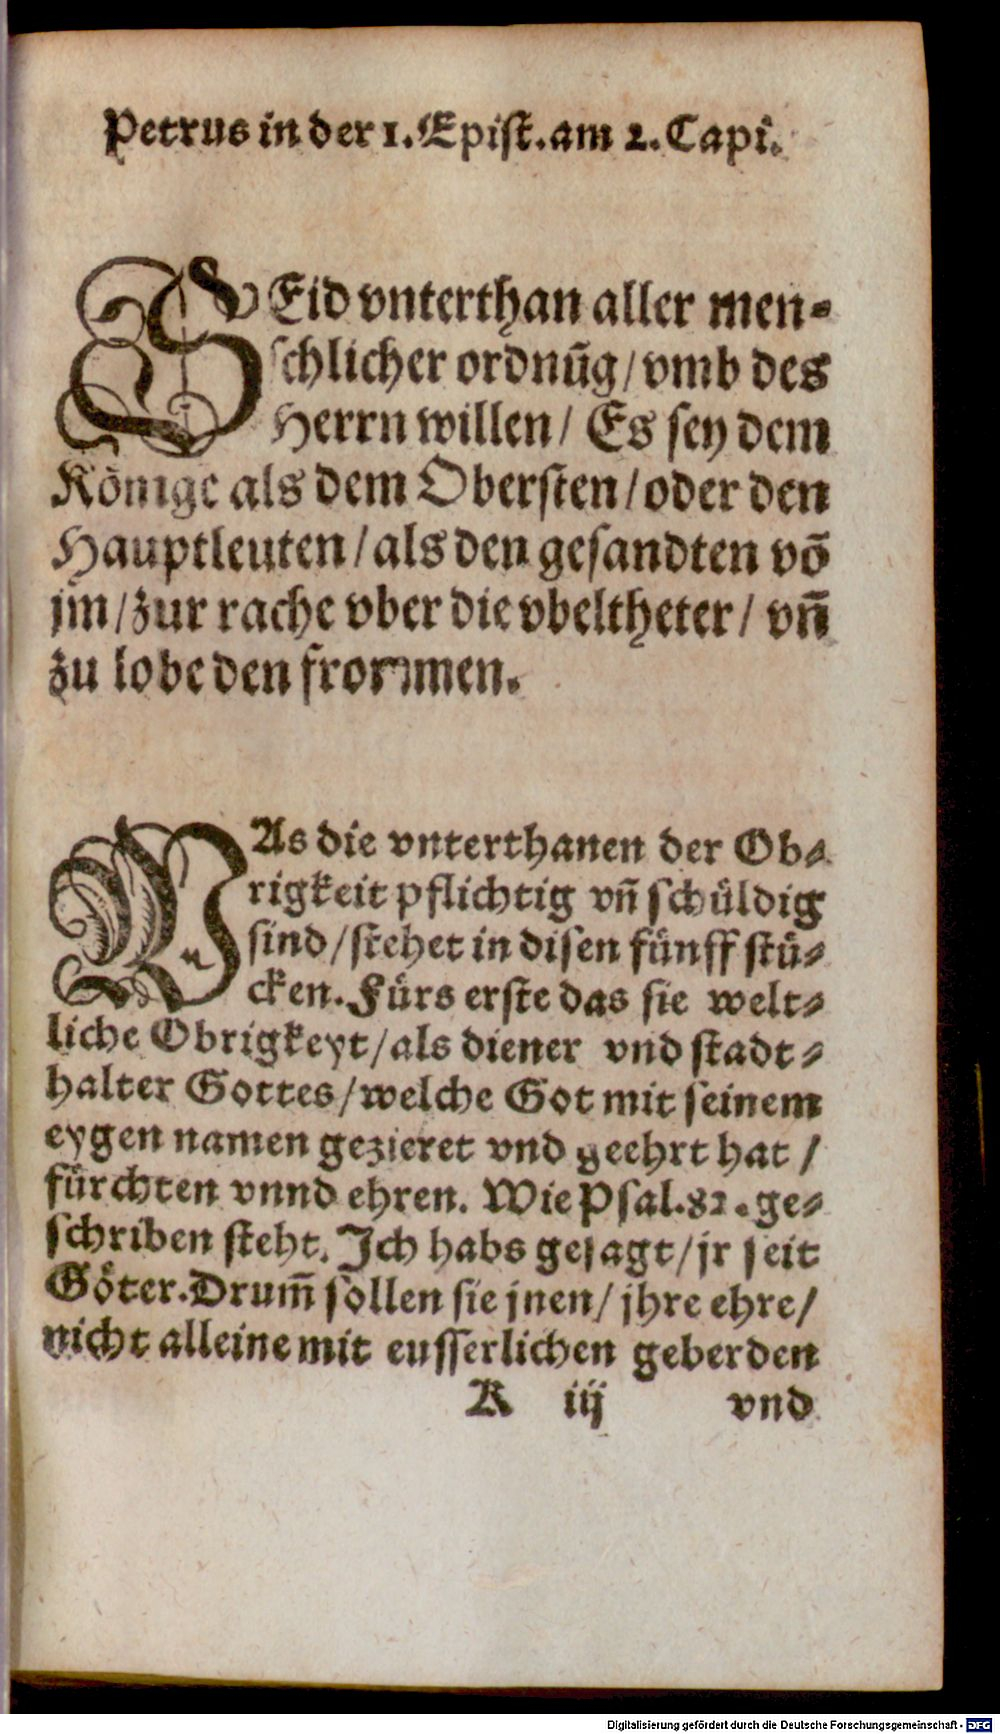 Petrus in der 1. Epist. am 2. Capi.
SEid vnterthan aller men⸗
schlicher ordnūg/ vmb des
Herrn willen/ Es sey dem
Könige als dem Obersten/ oder den
Hauptleuten/ als den gesandten vō
jm/ zur rache vber die vbeltheter/ vñ
zu lobe den frommen.
WAs die vnterthanen der Ob⸗
rigkeit pflichtig vñ schüldig
sind/ stehet in disen fünff stü⸗
cken. Fürs erste das sie welt⸗
liche Obrigkeyt/ als diener vnd stadt⸗
halter Gottes/ welche Got mit seinem
eygen namen gezieret vnd geehrt hat/
fürchten vnnd ehren. Wie Psal. 82. ge⸗
schriben steht. Ich habs gesagt/ jr seit
Göter. Drum̄ sollen sie jnen/ jhre ehre/
nicht alleine mit eusserlichen geberden
K iij vnd
Digitalisierung gefördert durch die Deutsche Forschungsgemeinschaft - DFG